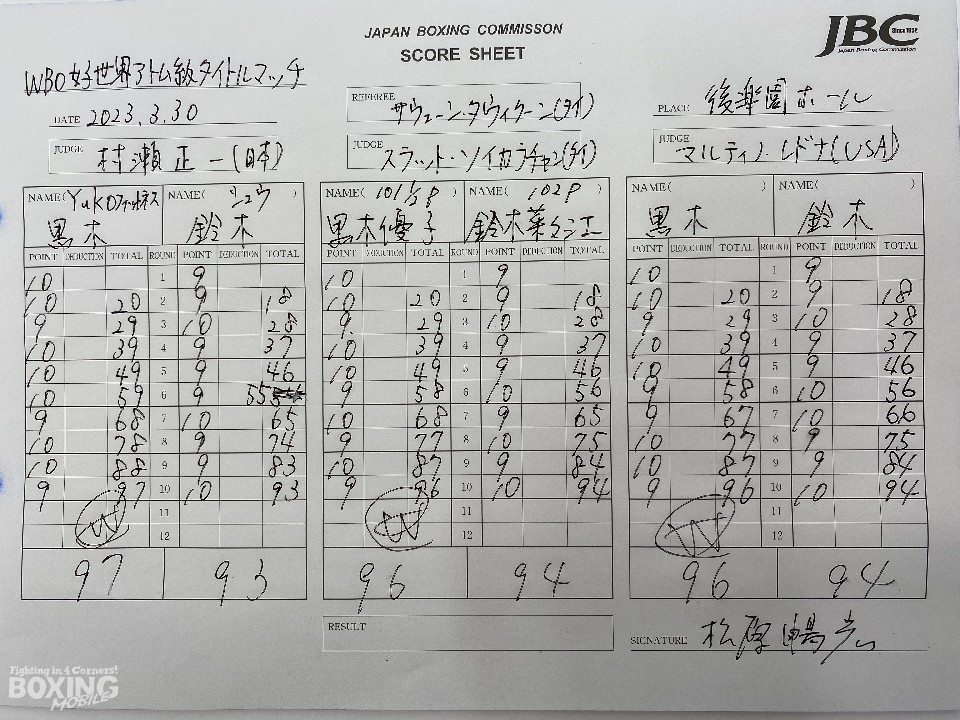 JAPAN BOXING COMMISSON
SCORE SHEET
JBC Since 1952
Japan Boxing Commission
WBO女子世界アトム級タイトルマッチ
DATE 2023.3.30
REFEREE サウェーン・タウィクーン(タイ)
PLACE 後楽園ホール
JUDGE 村瀬正一(日本)
JUDGE スラット・ソイカラチャン(タイ)
JUDGE マルティン・レドナ(USA)
NAME(YuKOフィットネス NAME( シュウ
黒木 鈴木
NAME(101 1/2P) NAME(102P
黒木優子 鈴木菜々江
NAME( ) NAME( )
黒木 鈴木
POINT DEDUCTION TOTAL ROUND POINT DEDUCTION TOTAL POINT DEDUCTION TOTAL ROUND POINT DEDUCTION TOTAL POINT DEDUCTION TOTAL ROUND POINT DEDUCTION TOTAL
10 1 9 10 1 9 10 1 9
10 20 2 9 18 10 20 2 9 18 10 20 2 9 18
9 29 3 10 28 9 29 3 10 28 9 29 3 10 28
10 39 4 9 37 10 39 4 9 37 10 39 4 9 37
10 49 5 9 46 10 49 5 9 46 10 49 5 9 46
10 59 6 9 55 9 58 6 10 56 9 58 6 10 56
9 68 7 10 65 10 68 7 9 65 9 67 7 10 66
10 78 8 9 74 9 77 8 10 75 10 77 8 9 75
10 88 9 9 83 10 87 9 9 84 10 87 9 9 84
9 97 10 10 93 9 96 10 10 94 9 96 10 10 94
W 11 W 11 W 11
12 12 12
97 93 96 94 96 94
RESULT
SIGNATURE 松原
Fighting in 4 Corners!
BOXING
MOBILE